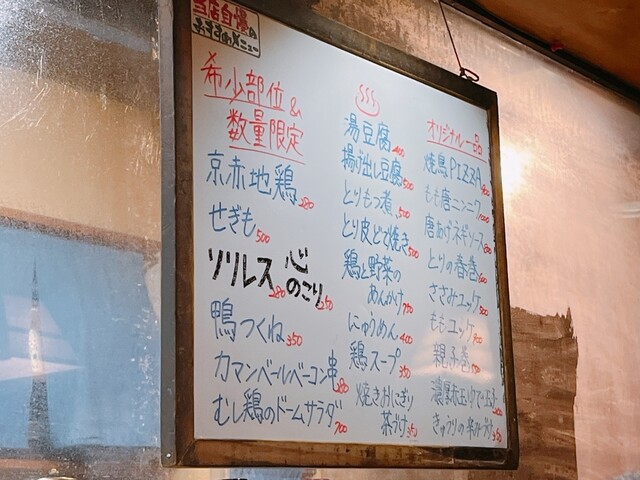 当店自慢の
おすすめメニュー
希少部位&
数量限定
京赤地鶏 280
せぎも 500
ソリレス 280
心のこり 250
鴨つくね 350
カマンベールベーコン串
むし鶏のドームサラダ 700
湯豆腐 400
揚げ出し豆腐 500
とりもつ煮 500
とり皮どて焼き 500
鶏と野菜の
あんかけ 750
にゅうめん 400
鶏スープ 350
焼きおにぎり
茶づけ
オリジナル一品
焼鳥PIZZA
もも唐ニンニク
唐あげネギソース
とりの春巻
ささみユッケ
ももユッケ
親子巻
濃厚赤玉ゆで玉子
きゅうりの